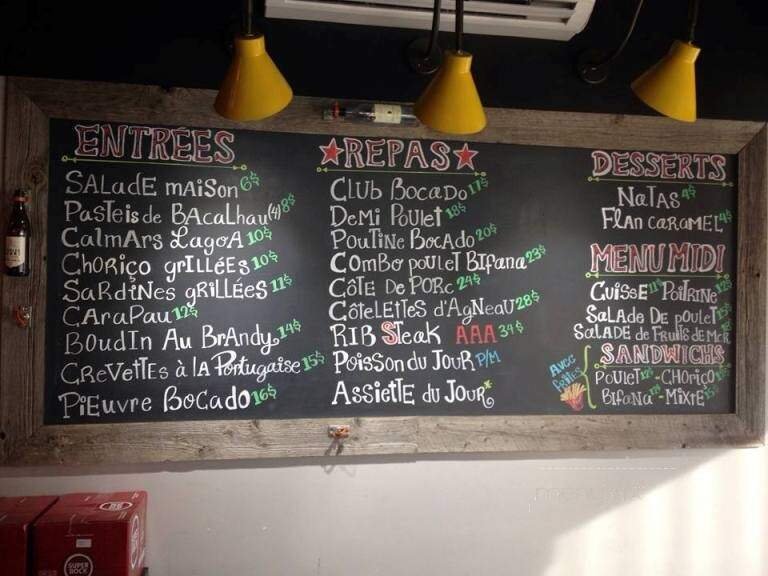 ENTRÉES
SALadE mAiSon 6$
Pasteis de BACalhau (4) 8$
CalmArs LagoA 10$
CHoriço grILLéEs 10$
SaRdiNes gRiLLées 11$
CAraPau 12$
BOUdin Au BrAndy 14$
CReVetteS à lA Portugaise 15$
PiEuvre BocAdo 16$
REPAS
CLUb BocADo 17$
DeMi PouLet 18$
PouTine BocAdo 20$
CoMbo pouLeT BIfana 23$
CÔTE De PORc 24$
CôTeLeTTes d'AgNeau 28$
RIB STeak AAA 34$
PoiSSon du JouR P/M
AssieTTe du Jour*
DESSERTS
NaTAS 4$
FLan CaRAMEL 4$
MENU MIDI
CuiSSe 11$ PoiTRiNe 12$
SaLade De pouLeT 15$
SALade de FRuiTs de MeR
SANDWICHS
AVec
fRiTes
PouLeT 12$ - CHoRiço 15$
BiFana - MixTe 15$
SUPER
BOCK